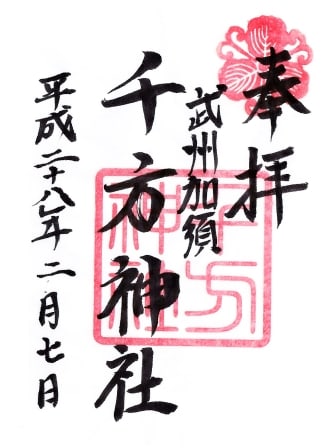 奉拝
武州加須
千方神社
平成二十八年二月七日
千方
神社